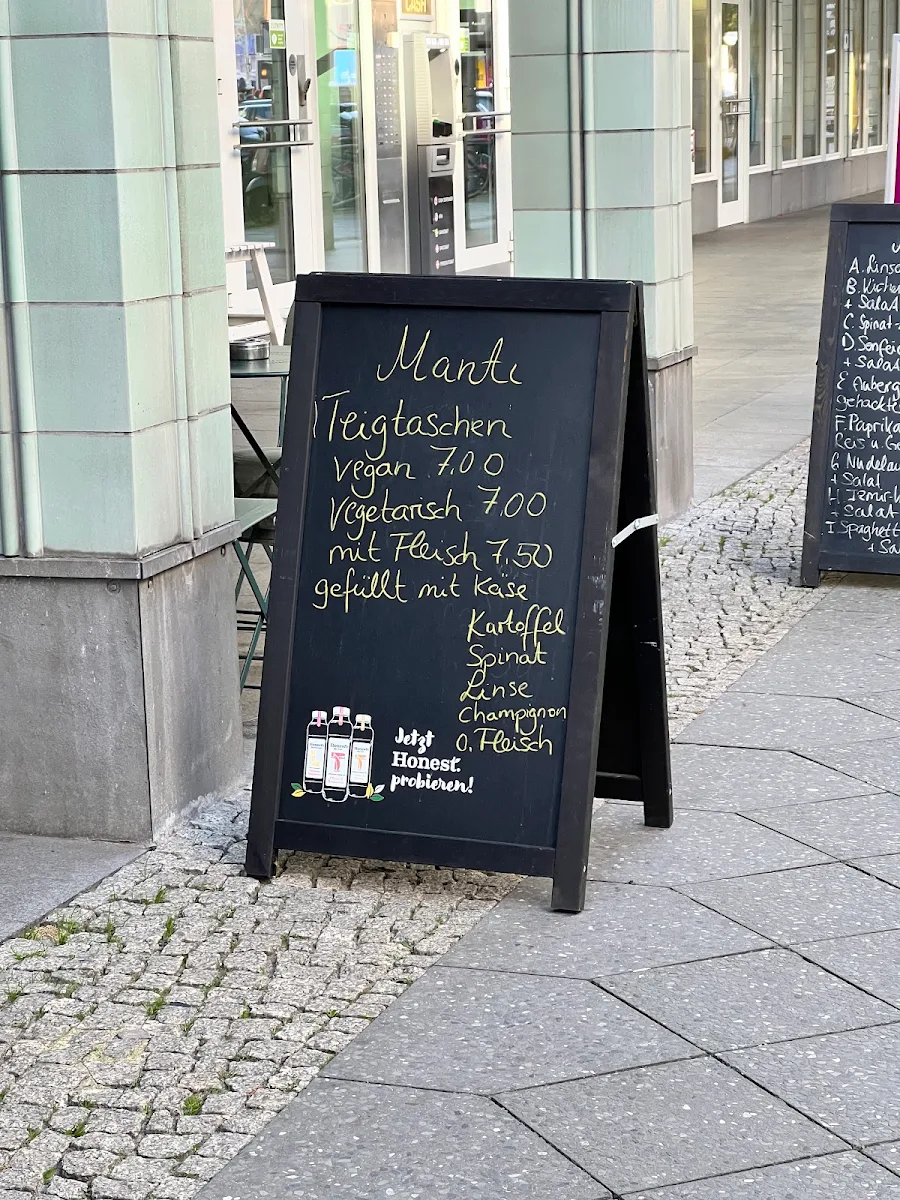 Manti
Teigtaschen
vegan 7.00
Vegetarisch 7.00
mit Fleisch 7,50
gefüllt mit Käse
Kartoffel
Spinat
Linse
Champignon
o. Fleisch
Jetzt
Honest.
probieren!
CASH
A. Linse
B. Kicher
+ Salat
C. Spinat-
D. Senfei
+ Salat
E Auberg
gehackte
F. Paprika
Reis u. Ge
G Nudelau
+ Salat
H. Izmir-K
+ Salat
I Spaghett
+ Sa